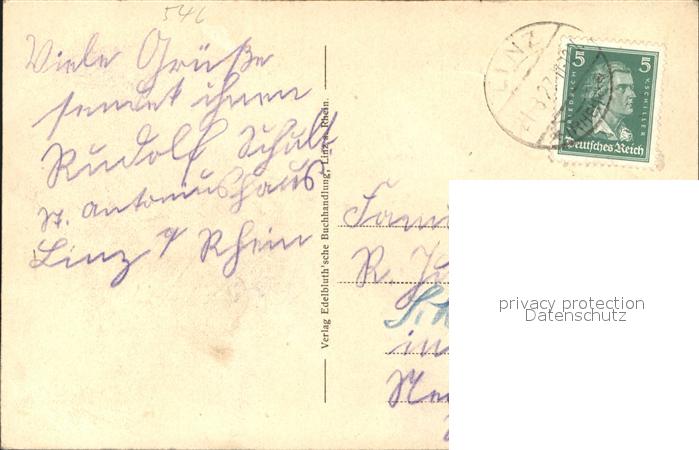 546
Viele Grüße
sendet ihnen
Rudolf Schult
St. Antoniushaus
Linz a/ Rhein
Verlag Edelbluth'sche Buchhandlung, Linz a. Rhein.
LINZ
5 5
FRIEDRICH V. SCHILLER
Deutsches Reich
R.
in
privacy protection
Datenschutz